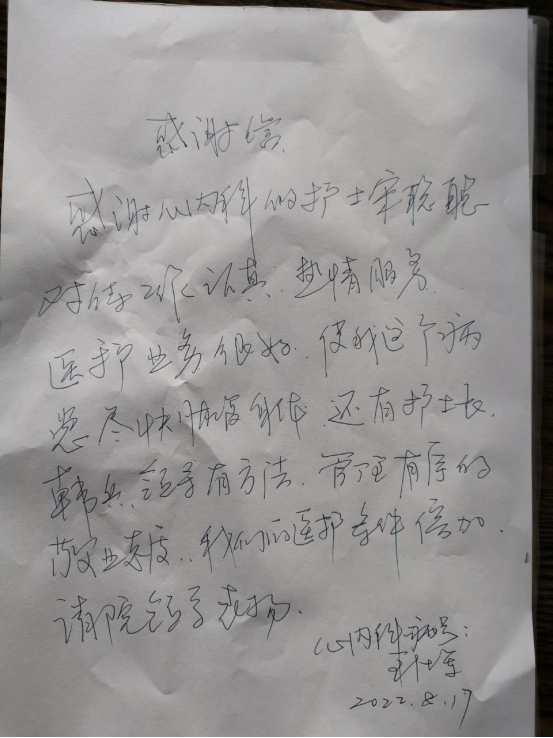 感谢信
感谢心内科的护士宋聪聪
对待工作认真、热情服务
医护业务很好、使我这个病
患尽快恢复身体 还有护士长
韩兵、领导有方法、管理有序的
敬业态度、我们的医护条件倍加
请院领导表扬、
心内科病号:
2022.8.17